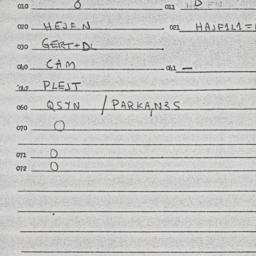 010 0 011
020 HEJFN 021 HAJF1L1=
030 GERT+DL
040 CAM 041 —
PLEJT
060 QSYN / PARKA,N3S
070 0
071 0
072 0